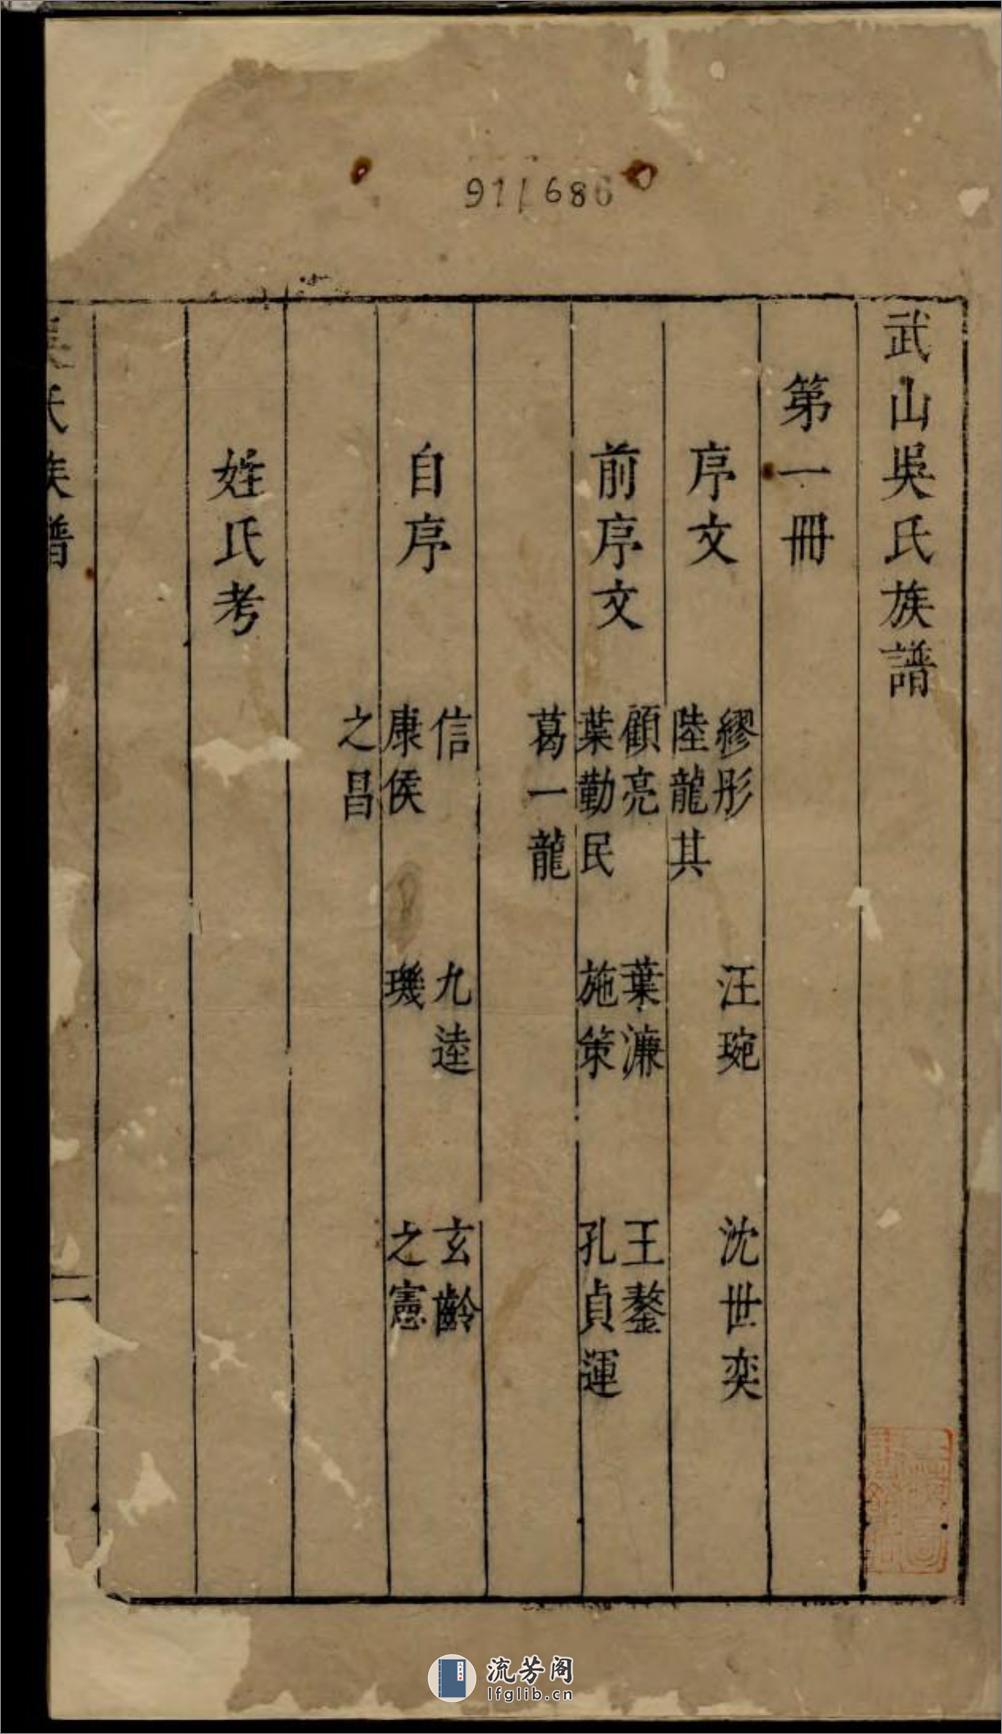 911686
武山吳氏族譜
第一冊
序文
繆彤 汪琬 沈世奕
陸龍其
前序文
顧亮 葉濂 王鏊
葉勤民 施策 孔貞運
葛一龍
自序
信 九逵 玄齡
康侯 璣 之憲
之昌
姓氏考
氏族譜
二
流芳阁
lfglib.cn